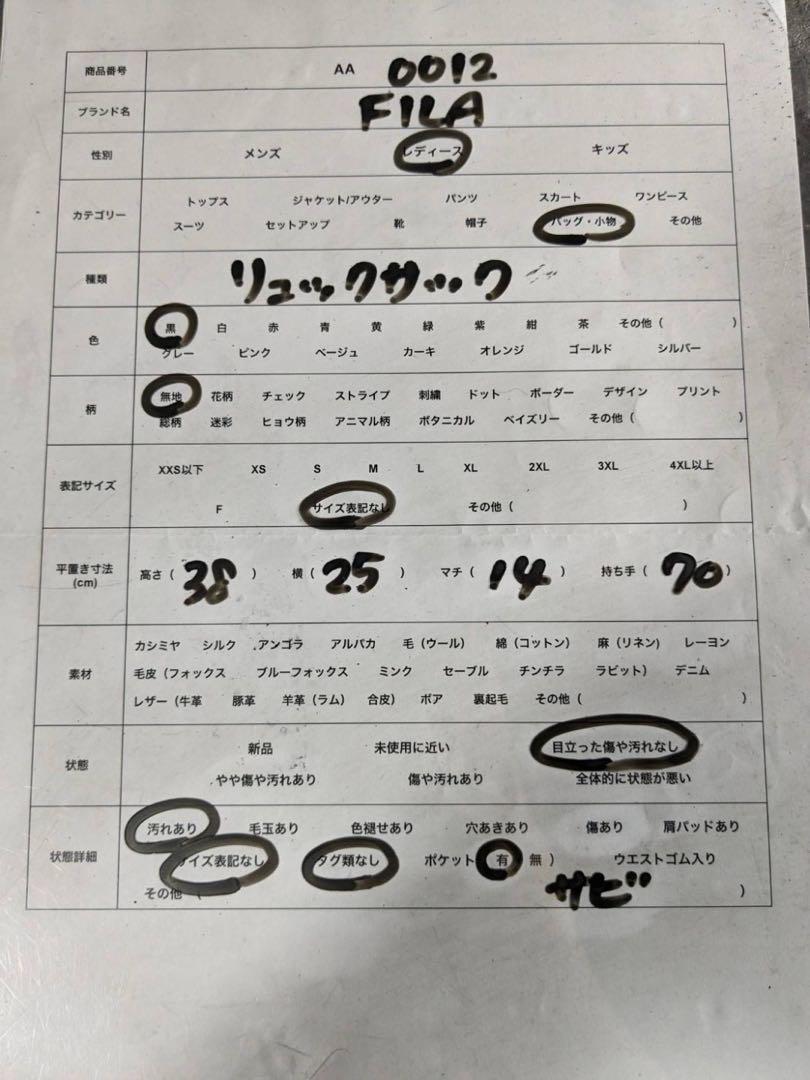 商品番号 AA 0012
ブランド名 FILA
性別 メンズ レディース キッズ
カテゴリー トップス ジャケット/アウター パンツ スカート ワンピース
スーツ セットアップ 靴 帽子 バッグ・小物 その他
種類 リュックサック
色 黒 白 赤 青 黄 緑 紫 紺 茶 その他 ( )
グレー ピンク ベージュ カーキ オレンジ ゴールド シルバー
柄 無地 花柄 チェック ストライプ 刺繍 ドット ボーダー デザイン プリント
総柄 迷彩 ヒョウ柄 アニマル柄 ボタニカル ペイズリー その他 ( )
表記サイズ XXS以下 XS S M L XL 2XL 3XL 4XL以上
F サイズ表記なし その他 ( )
平置き寸法 (cm) 高さ ( 38 ) 横 ( 25 ) マチ ( 14 ) 持ち手 ( 70 )
素材 カシミヤ シルク アンゴラ アルパカ 毛 (ウール) 綿 (コットン) 麻 (リネン) レーヨン
毛皮 (フォックス ブルーフォックス ミンク セーブル チンチラ ラビット) デニム
レザー (牛革 豚革 羊革 (ラム) 合皮) ボア 裏起毛 その他 ( )
状態 新品 未使用に近い 目立った傷や汚れなし
やや傷や汚れあり 傷や汚れあり 全体的に状態が悪い
状態詳細 汚れあり 毛玉あり 色褪せあり 穴あきあり 傷あり 肩パッドあり
サイズ表記なし タグ類なし ポケット ( 有 無 ) ウエストゴム入り
その他 ( サビ )